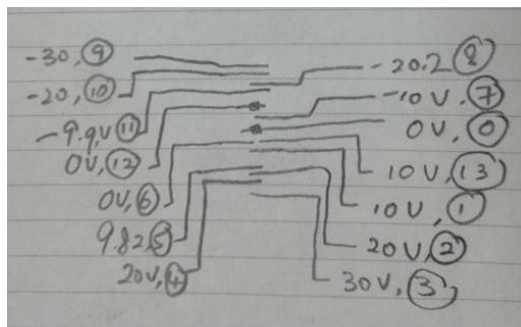 -30, 9
-20, 10
-9.9, V 11
0V, 12
0V, 6
9.82, 5
20V, 4
-20.2 8
-10 V, 7
0V, 0
10 V, 13
10 V, 1
20 V, 2
30 V, 3